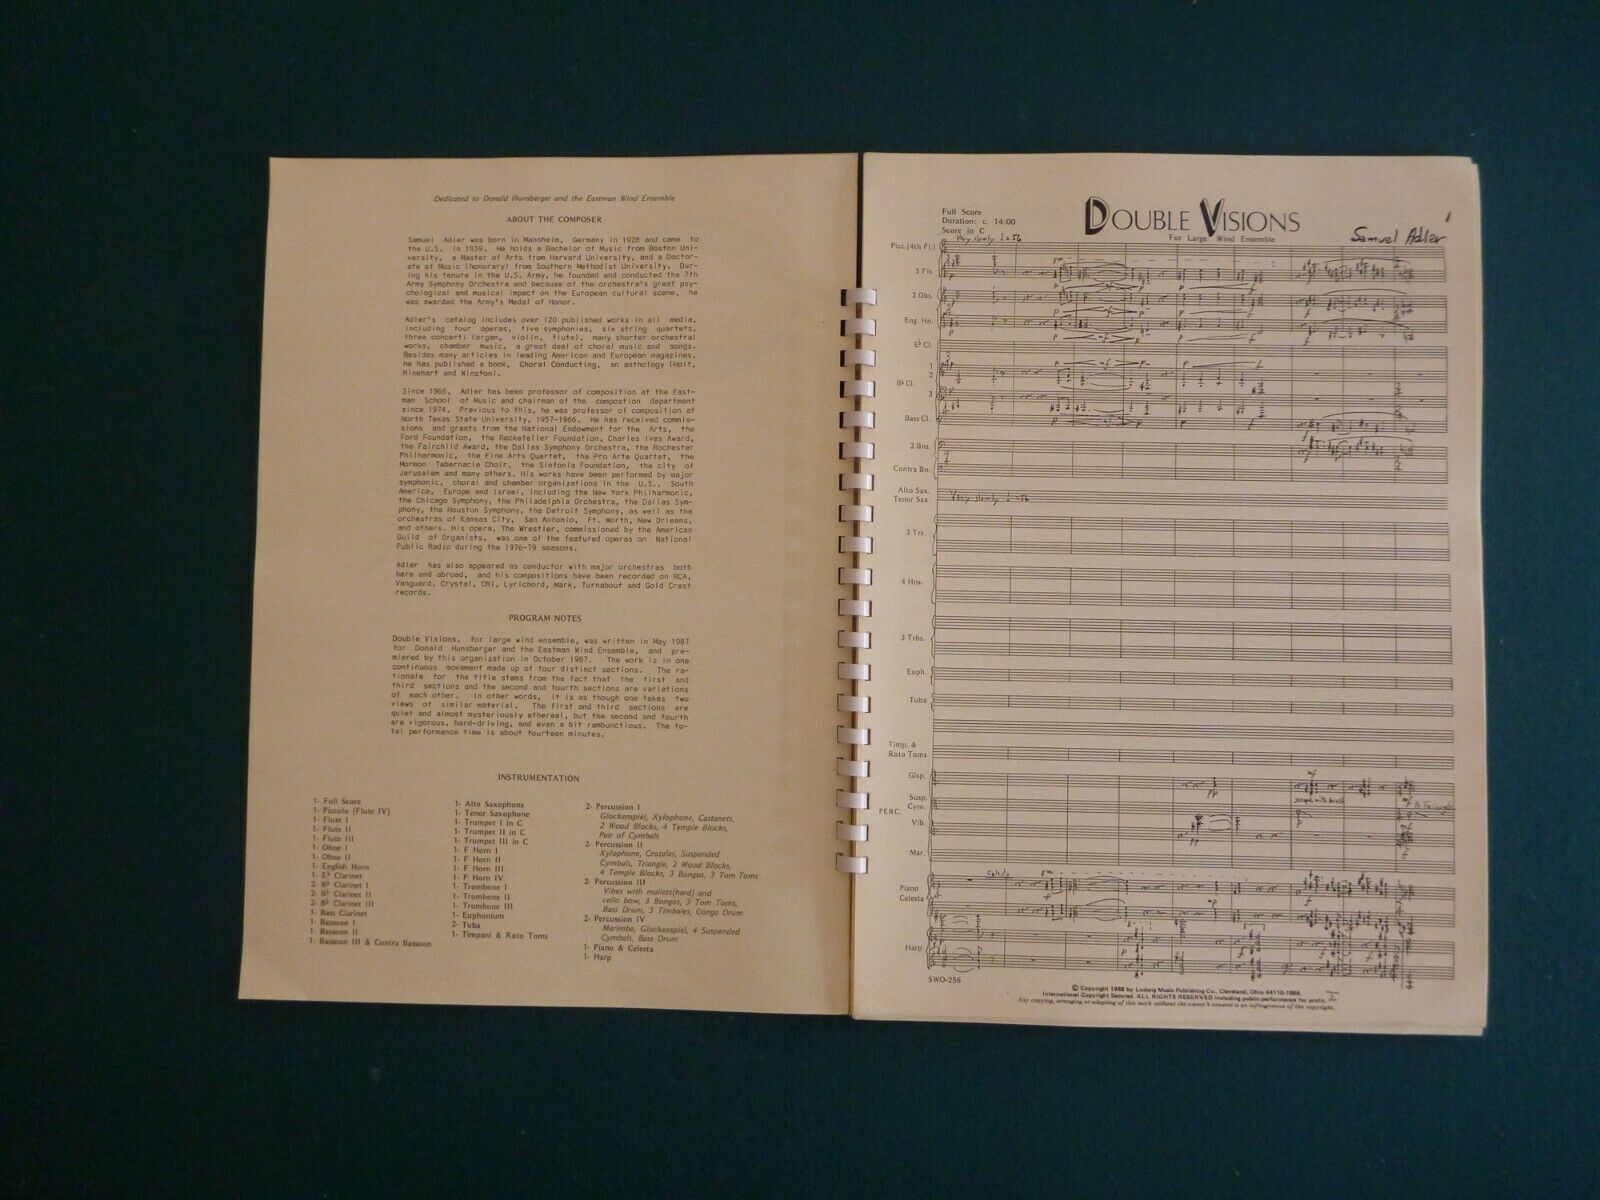 Dedicated to Donald Hunsberger and the Eastman Wind Ensemble
ABOUT THE COMPOSER
Samuel Adler was born in Mannheim, Germany in 1928 and came to
the U.S. in 1939. He holds a Bachelor of Music from Boston Uni-
versity, a Master of Arts from Harvard University, and a Doctor-
ate of Music (honorary) from Southern Methodist University. Dur-
ing his tenure in the U.S. Army, he founded and conducted the 7th
Army Symphony Orchestra and because of the orchestra's great psy-
chological and musical impact on the European cultural scene, he
was awarded the Army's Medal of Honor.
Adler's catalog includes over 120 published works in all media,
including four operas, five symphonies, six string quartets,
three concerti (organ, violin, flute), many shorter orchestral
works, chamber music, a great deal of choral music and songs.
Besides many articles in leading American and European magazines,
he has published a book, Choral Conducting, an anthology (Holt,
Rinehart and Winston).
Since 1966, Adler has been professor of composition at the East-
man School of Music and chairman of the compostion department
since 1974. Previous to this, he was professor of composition at
North Texas State University, 1957-1966. He has received commis-
sions and grants from the National Endowment for the Arts, the
Ford Foundation, the Rockefeller Foundation, Charles Ives Award,
the Fairchild Award, the Dallas Symphony Orchestra, the Rochester
Philharmonic, the Fine Arts Quartet, the Pro Arte Quartet, the
Mormon Tabernacle Choir, the Sinfonia Foundation, the city of
Jerusalem and many others. His works have been performed by major
symphonic, choral and chamber organizations in the U.S., South
America, Europe and Israel, including the New York Philharmonic,
the Chicago Symphony, the Philadelphia Orchestra, the Dallas Sym-
phony, the Houston Symphony, the Detroit Symphony, as well as the
orchestras of Kansas City, San Antonio, Ft. Worth, New Orleans,
and others. His opera, The Wrestler, commissioned by the American
Guild of Organists, was one of the featured operas on National
Public Radio during the 1976-79 seasons.
Adler has also appeared as conductor with major orchestras both
here and abroad, and his compositions have been recorded on RCA,
Vanguard, Crystal, CRI, Lyrichord, Mark, Turnabout and Gold Crest
records.
PROGRAM NOTES
Double Visions, for large wind ensemble, was written in May 1987
for Donald Hunsberger and the Eastman Wind Ensemble, and pre-
miered by this organization in October 1987. The work is in one
continuous movement made up of four distinct sections. The ra-
tionale for the title stems from the fact that the first and
third sections and the second and fourth sections are variations
of each other. In other words, it is as though one takes two
views of similar material. The first and third sections are
quiet and almost mysteriously ethereal, but the second and fourth
are vigorous, hard-driving, and even a bit rambunctious. The to-
tal performance time is about fourteen minutes.
INSTRUMENTATION
1- Full Score
1- Piccolo (Flute IV)
1- Flute I
1- Flute II
1- Flute III
1- Oboe I
1- Oboe II
1- English Horn
1- E♭ Clarinet
2- B♭ Clarinet I
2- B♭ Clarinet II
2- B♭ Clarinet III
1- Bass Clarinet
1- Bassoon I
1- Bassoon II
1- Bassoon III & Contra Bassoon
1- Alto Saxophone
1- Tenor Saxophone
1- Trumpet I in C
1- Trumpet II in C
1- Trumpet III in C
1- F Horn I
1- F Horn II
1- F Horn III
1- F Horn IV
1- Trombone I
1- Trombone II
1- Trombone III
1- Euphonium
2- Tuba
1- Timpani & Roto Toms
2- Percussion I
Glockenspiel, Xylophone, Castanets,
2 Wood Blocks, 4 Temple Blocks,
Pair of Cymbals
2- Percussion II
Xylophone, Crotales, Suspended
Cymbals, Triangle, 2 Wood Blocks,
4 Temple Blocks, 3 Bongos, 3 Tom Toms
2- Percussion III
Vibes with mallets(hard) and
cello bow, 3 Bongos, 3 Tom Toms,
Bass Drum, 3 Timbales, Conga Drum
2- Percussion IV
Marimba, Glockenspiel, 4 Suspended
Cymbals, Bass Drum
1- Piano & Celesta
1- Harp
Full Score
Duration: c. 14:00
Score in C
DOUBLE VISIONS
For Large Wind Ensemble
1
Samuel Adler
Very slowly ♩=56
Picc.(4th Fl.)
3 Fls.
2 Obs.
Eng. Hn.
E♭ Cl.
1
2
B♭ Cl.
3
Bass Cl.
2 Bns.
Contra Bn.
Alto Sax.
Tenor Sax.
Very slowly ♩=56
3 Trs.
4 Hns.
3 Trbs.
Euph.
Tuba
Timp. &
Roto Toms
Glsp.
Susp.
Cym.
PERC.
Vib.
Mar.
Piano
Celesta
Celesta
Harp
SWO-256
© Copyright 1988 by Ludwig Music Publishing Co., Cleveland, Ohio 44110-1999.
International Copyright Secured. ALL RIGHTS RESERVED including public performance for profit.
Any copying, arranging or adapting of this work without the owner's consent is an infringement of the copyright.